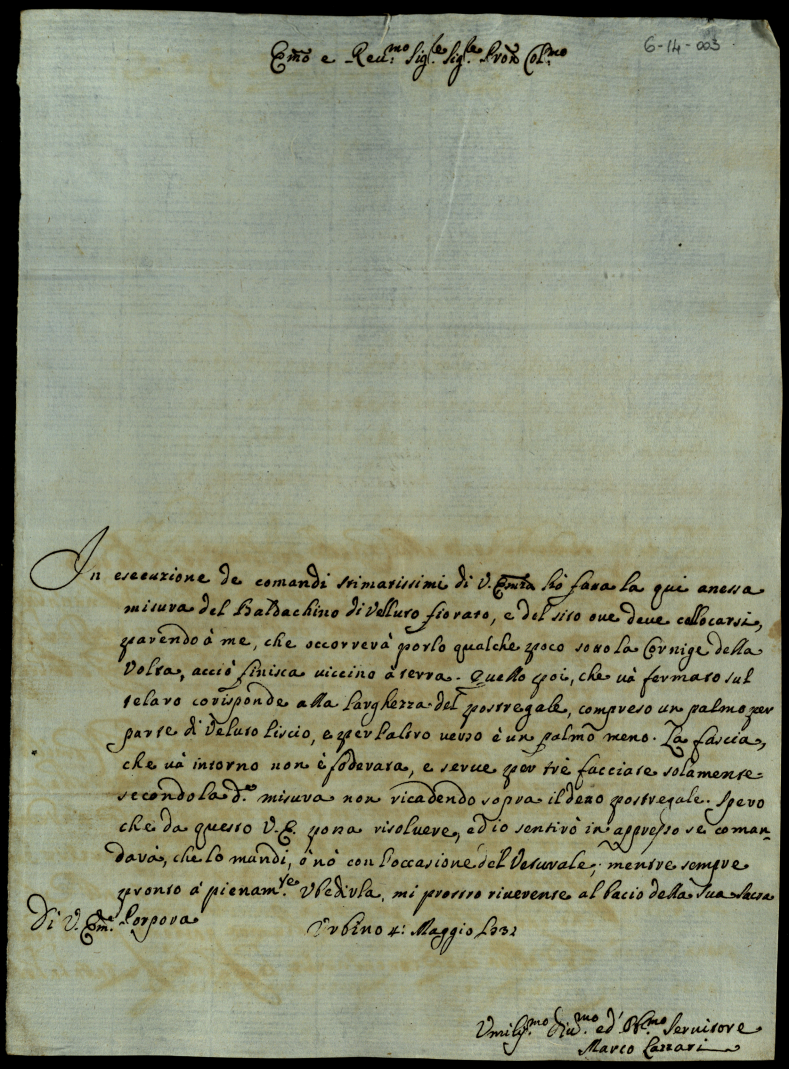 6-14-003
Em̃o e Reu.mo Sig.re Sig.re Pron̄ Col.mo
In esecuzione de comandi stimatissimi di V. Em̃za hò fatta la qui anessa
misura del Baldachino di Velluto fiorato, e del sito oue deue collocarsi,
parendo à me, che occorrerà porlo qualche poco sotto la Cornige della
Volta, acciò finisca viccino à terra. Quello poi, che và fermato sul
telaro corisponde alla larghezza del postregale, compreso un palmo per
parte di Veluto liscio, e per l'altro verso è un palmo meno. La fascia,
che và intorno non è foderata, e serue per trè facciate solamente
secondo la d.a misura non ricadendo sopra il detto postregale. Spero
che da questo V. E. possa risoluere, ed io sentirò in appresso se coman-
darà, che lo mandi, ò nò con l'occasione del Vetturale, mentre sempre
pronto à pienam.te Vbedirla, mi prostro riuerente al bacio della Sua Sacra
Porpora
Di V. Em.
Vrbino 4: Maggio 1732
Vmiliss.mo Diu.mo ed' Obl.mo Seruitore
Marco Lazzari